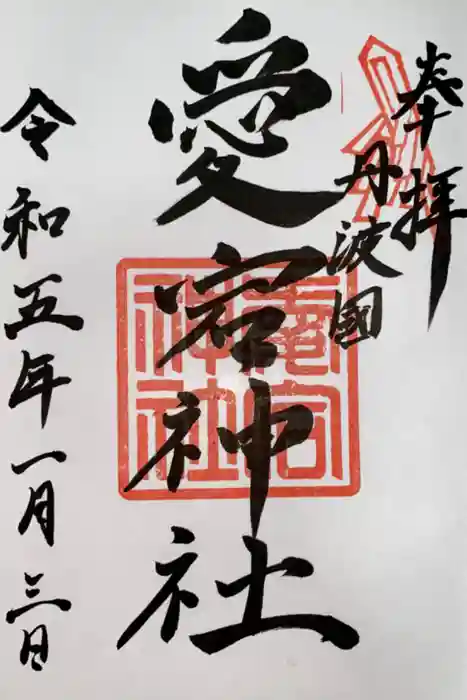 奉拝
丹波國
愛宕神社
愛宕神社
令和五年一月三日